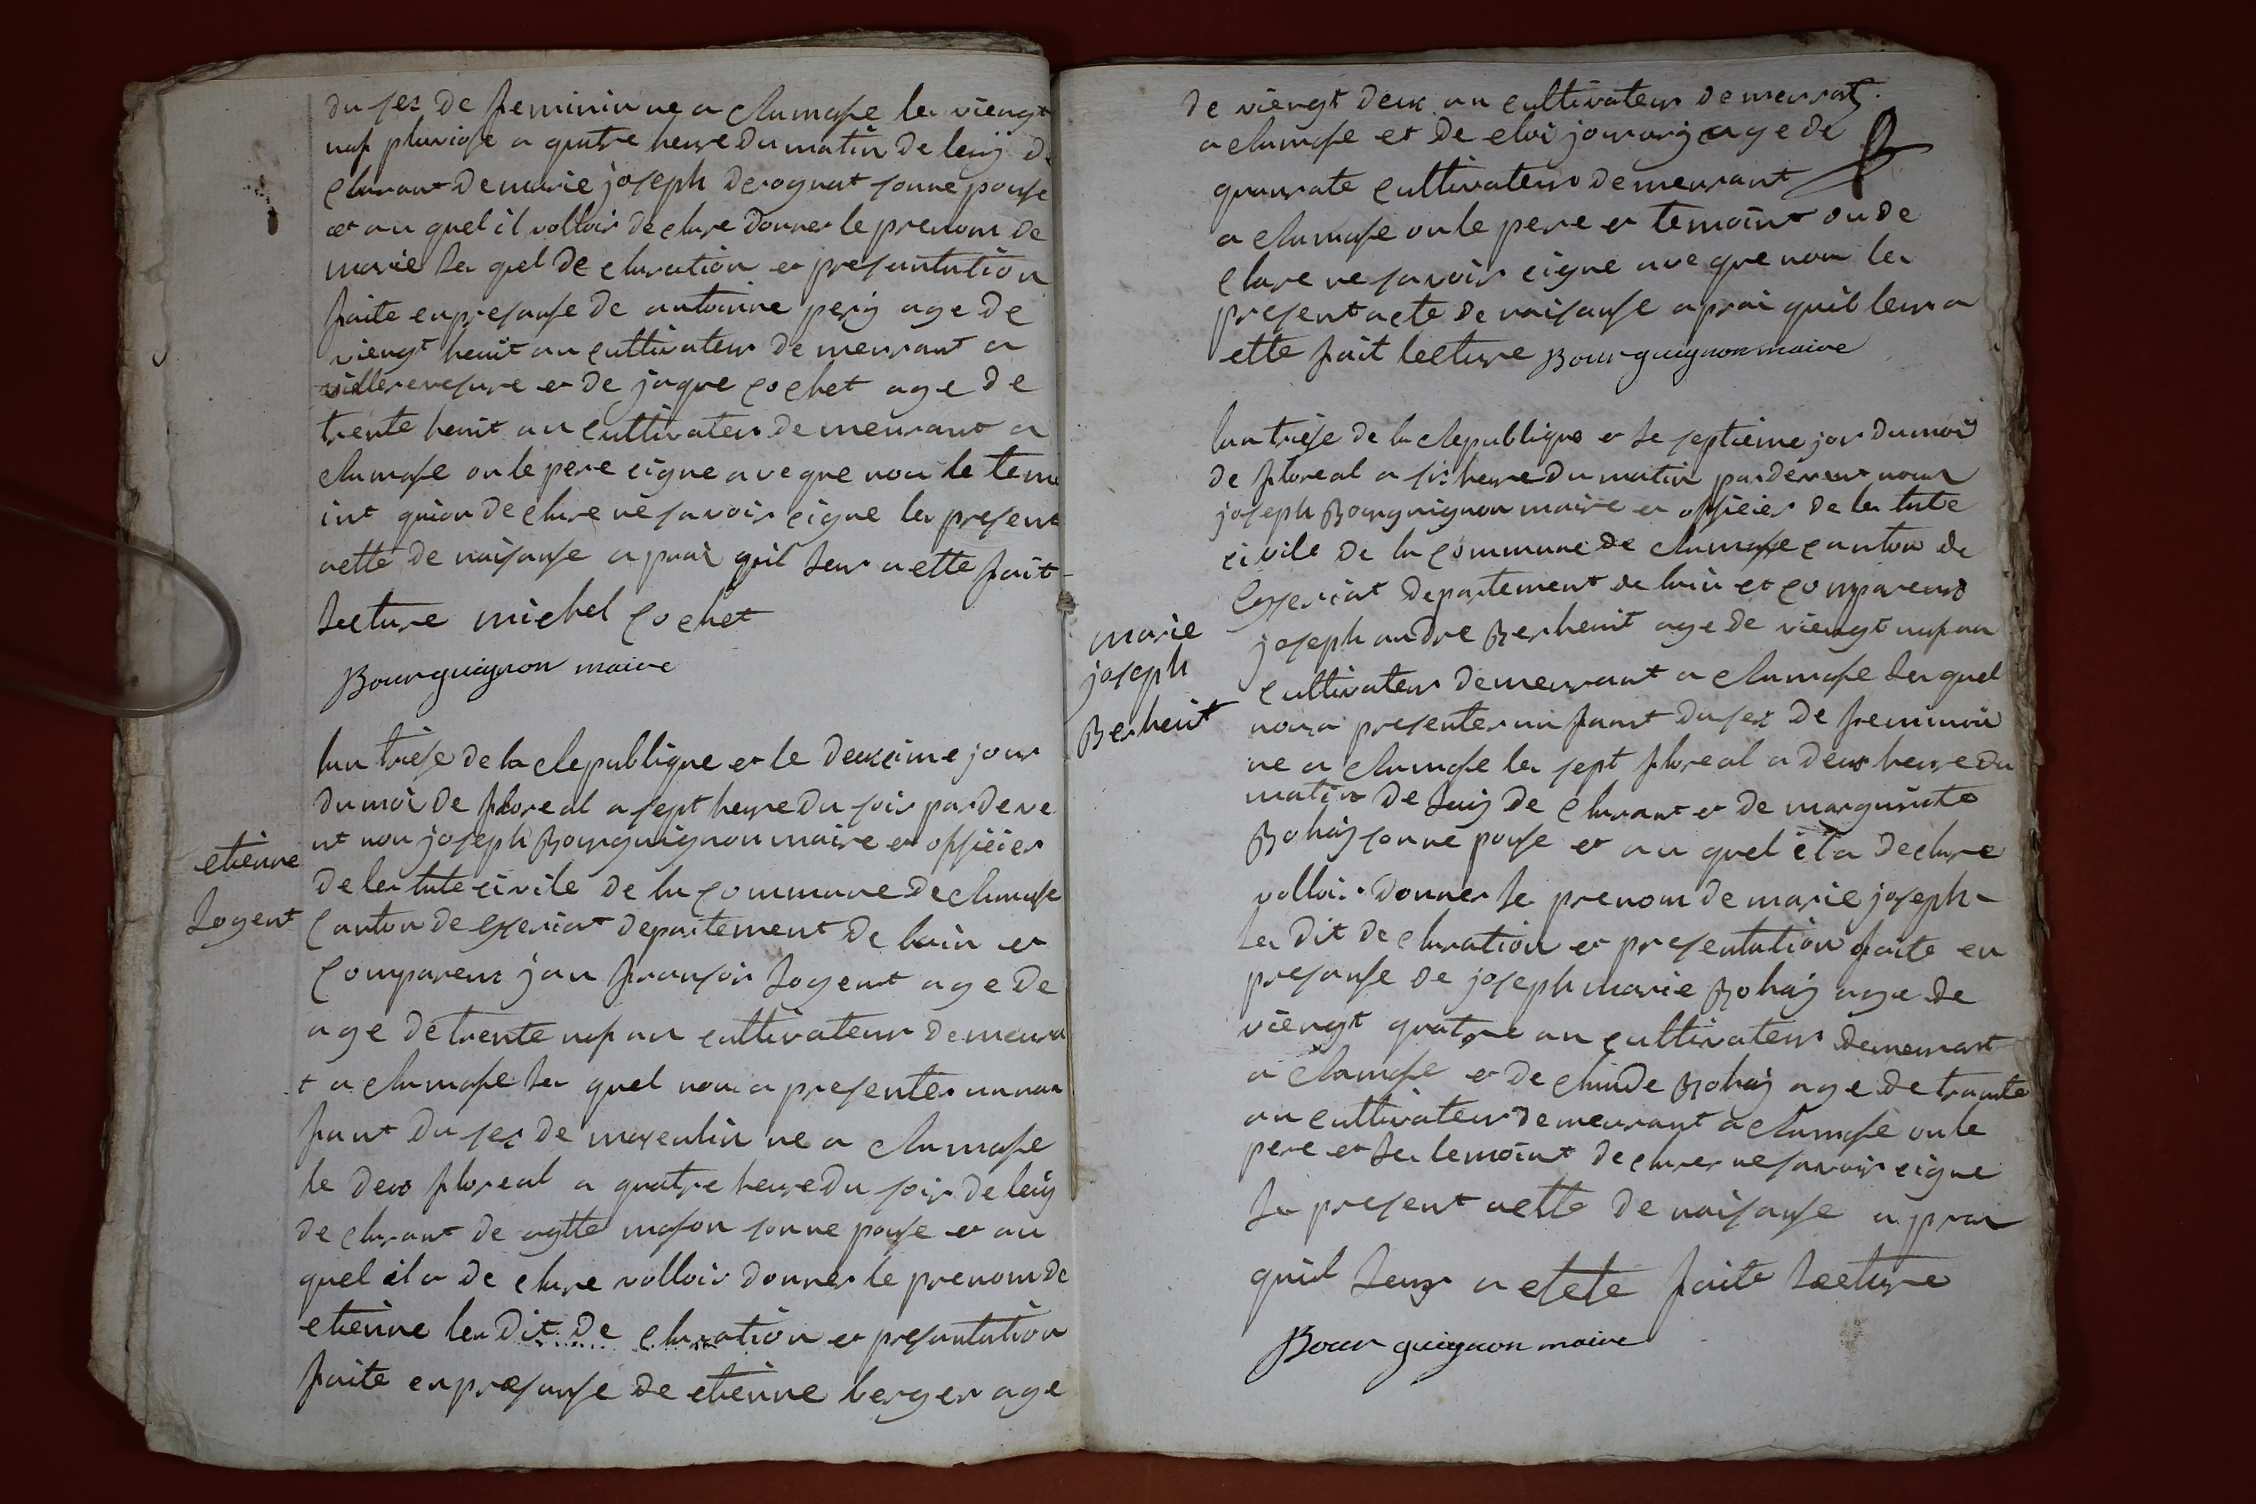 du sex de feminin ne a chamose le viengt
nof pluviose a quatre heure du matin de luij de
clarant de marie joseph derognat sonne pouse
et au quel il volloir declare donner le prenom de
marie le quel de claration et presantution
faite enpresanse de antoinne perij age de
viengt heuit an cultivateur demeurant a
villerevesure et de jaque cochet age de
trente heuit an cultivateur demeurant a
chamose on le pere cigne aveque nou le temo
int quion declare ne savoir cigne le present
actte de naisanse a prai quil leur a ette fait
lecture michel cochet
Bourguignon maire
lan triese de la Republique et le deuxcime jour
du moi de floreal a sept heure du soir pardeve
nt nou joseph Bourguignon maire et officier
etienne
Logent
de le tate civile de la commune de chamose
canton de Ceyzeriat departement de lain et
comparens jan fransoir Logent age de
age de trente nof an cultivateur demeura
t a chamose le quel nou a presenter un nan
fant du sex de masculin ne a chamose
le deux floreal a quatre heure du soir de luij
declarant de agtte mason sonne pouse et au
quel il a de clare volloir donner le prenom de
etienne le dit de claration et presantution
faite enpresanse de etienne berger age
de viengt deux an cultivateur demeurat
a chamose et de eloi jouvanj age de
quaurate cultivateur demeurant
a chamose on le pere et temoint on de
clare ne savoir cigne aveque nou le
present acte de naisanse a prai quil leur a
ette fait lecture Bourguignon maire
lan triese de la Republique et le septieme jor du moi
de floreal a six heure du matin pardevent nous
joseph Bourguignon maire et officier de le tate
civile de la commune de chamose canton de
Ceyzeriat departement de lain et comparens
marie
joseph
Berheuit
joseph andre Berheuit age de viengt nof an
cultivateur demeurant a chamose le quel
nou a presenter un faant du sex de feminin
ne a chamose le sept floreal a deux heure du
matin de luij de clarant et de marguirite
Bohaij sonne pouse et au quel il a declare
volloir donner le prenom de marie joseph
le dit de claration et presentution faite en
presanse de joseph marie Bohaij age de
viengt quatre an cultivateur demeurant
a chamose et de claude Bohaij age de traante
an cultivateur demeurant a chamose on le
pere et le temoint declarer ne savoir cigne
le present actte de naisanse a prai
quil leur a etete faite lecture
Bourguignon maire